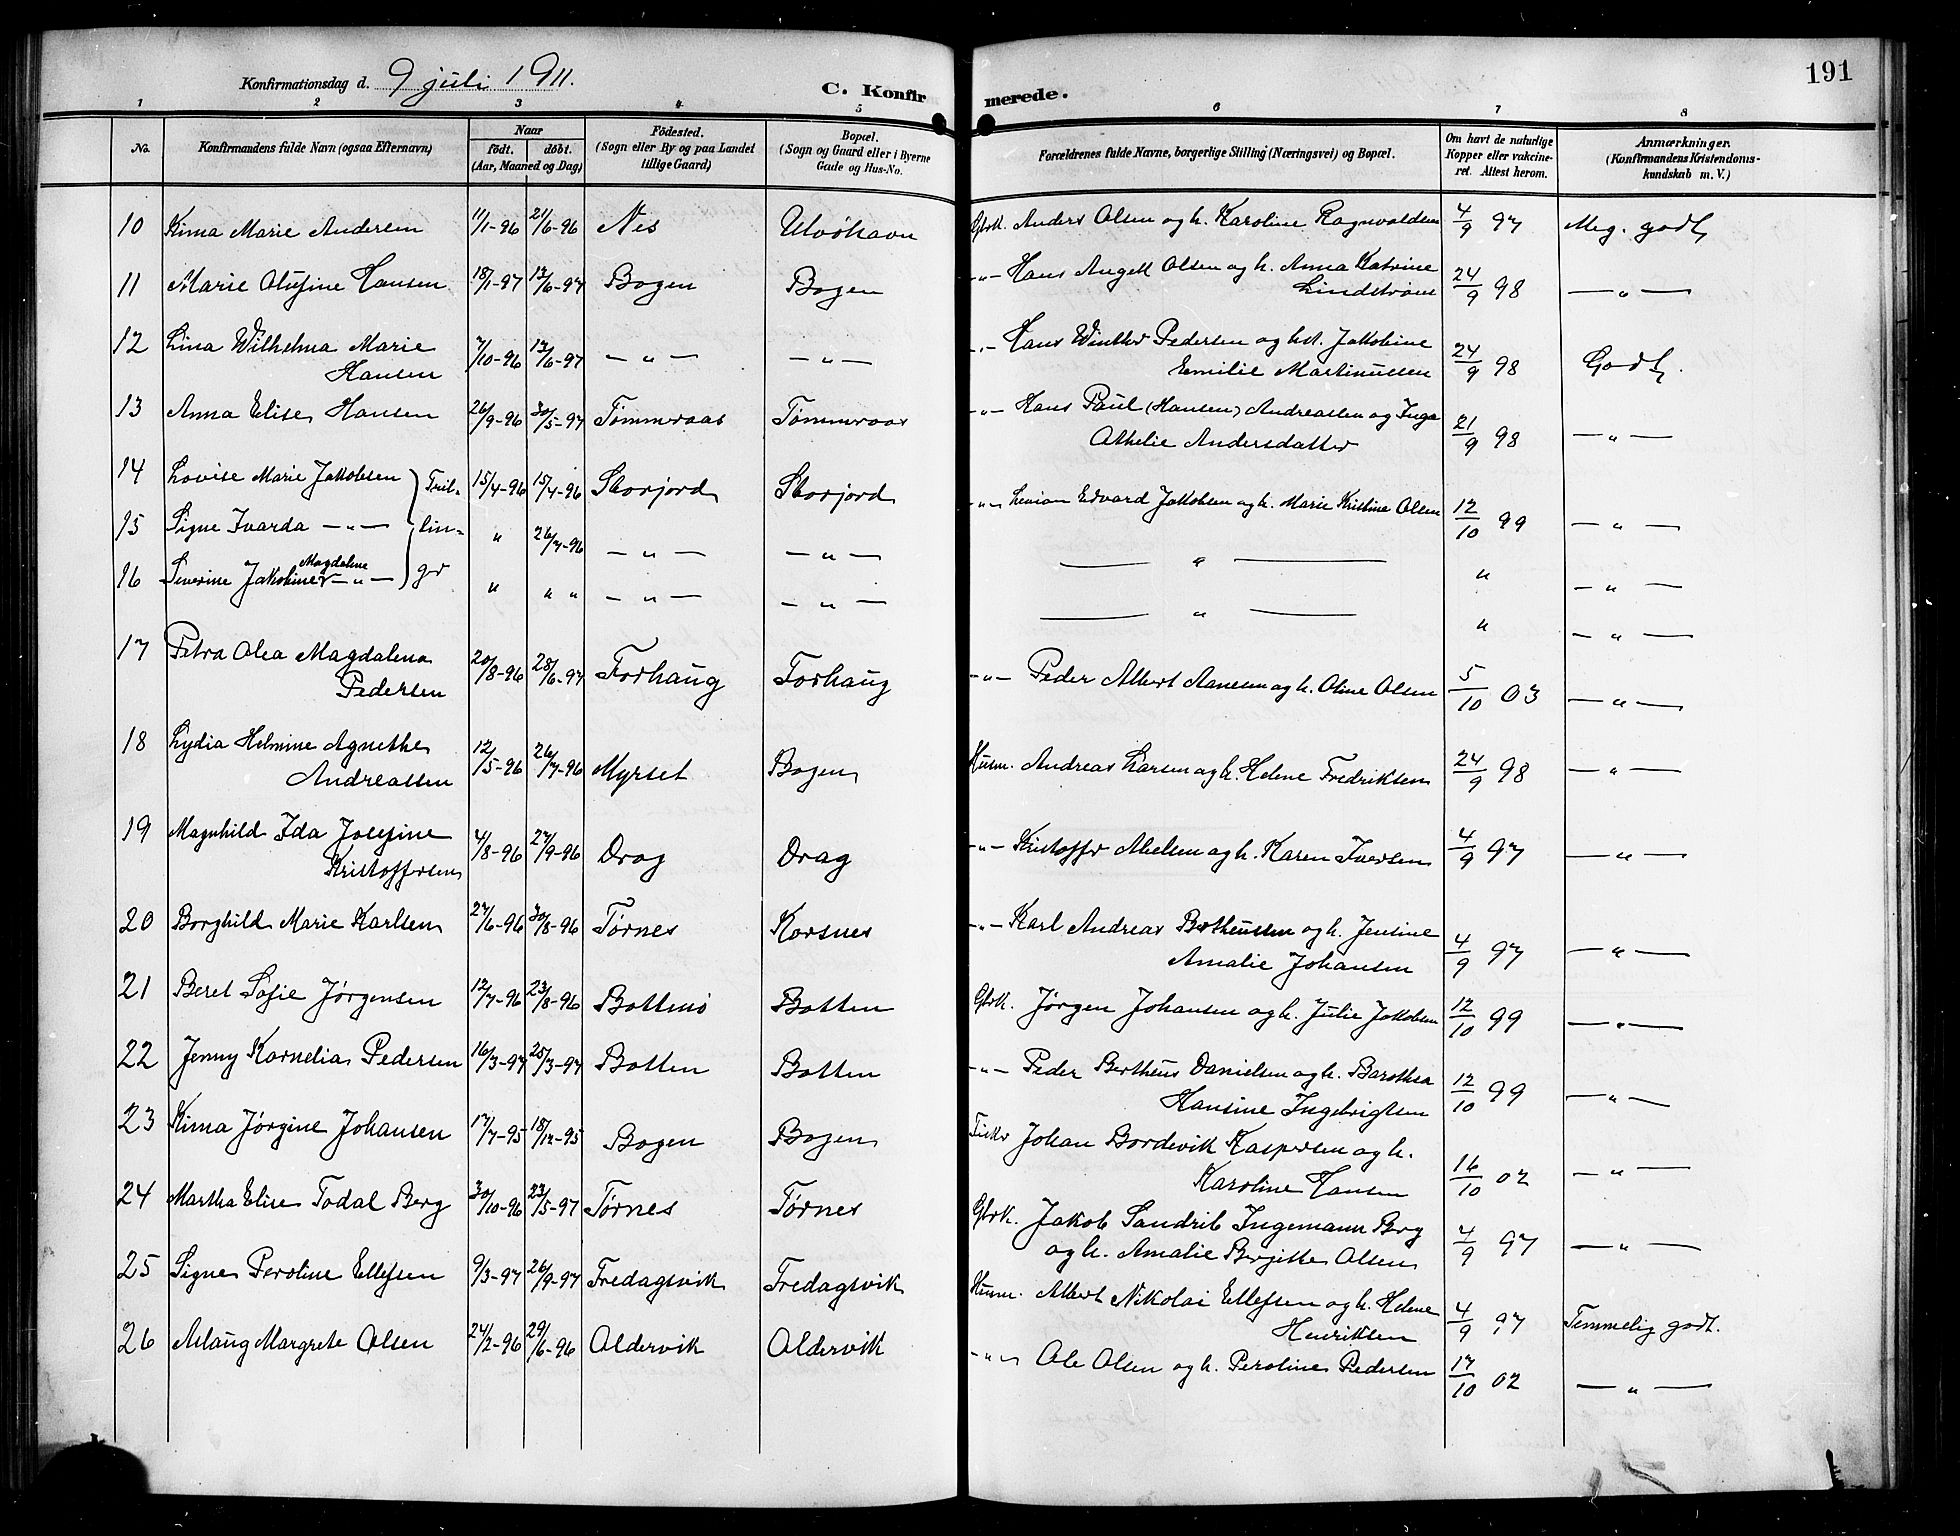 191
Konfirmationsdag d. 9 juli 1911.
C. Konfirmerede.
1 2 3 4 5 6 7 8
No. Konfirmandens fulde Navn (ogsaa Efternavn) Naar født. døbt. (Aar, Maaned og Dag) Fødested. (Sogn eller By og paa Landet tillige Gaard) Bopæl. (Sogn og Gaard eller i Byerne Gade og Hus-No. Forældrenes fulde Navne, borgerlige Stilling (Næringsvei) og Bopæl. Om havt de naturlige Kopper eller vakcineret. Attest herom. Anmærkninger. (Konfirmandens Kristendomskundskab m. V.)
10 Kima Marie Andersen 11/1-96 21/6-96 Nes Ulvöhavn Gbrk. Anders Olsen og h. Karoline Ragnvaldsen 4/9 97 Meg. godt
11 Marie Olufine Hansen 18/1-97 13/6-97 Bogen Bogen -"- Hans Angell Olsen og h. Anna Katrine
Lindström 24/9 98 —"—
12 Lina Wilhelma Marie
Hansen 7/10-96 13/6-97 —"— —"— -"- Hans Winther Pedersen og hst. Jakobine
Emilie Martinussen 24/9 98 Godt.
13 Anna Elise Hansen 26/9-96 30/5-97 Tømmraas Tømmraas -"- Hans Paul (Hansen) Andreassen og Inga
Athelie Andersdatter 21/9 98 —"—
14 Lovise Marie Jakobsen Tril- 15/4-96 15/4-96 Storjord Storjord -"- Edvard Jakobsen og h. Marie Kristine Olsen 12/10 99 —"—
15 Signe Ivarda —"— lin- " 26/7-96 —"— —"— —"— " —"—
16 Severine Jakobine Magdalene —"— ger " " " —"— —"— —"— " —"—
17 Petra Olea Magdalena
Pedersen 20/8-96 28/6-97 Forhaug Forhaug -"- Peder Albert Aanesen og h. Oline Olsen 5/10 03 —"—
18 Lydia Helmine Agnethe
Andreassen 12/5-96 26/7-96 Myrset Bogen Husm. Andreas Larsen og h. Helene Fredriksen 24/9 98 —"—
19 Magnhild Ida Josefine
Kristoffersen 4/8-96 27/9-96 Drag Drag -"- Kristoffer Abelsen og h. Karen Iversen 4/9 97 —"—
20 Borghild Marie Karlsen 27/6-96 30/8-96 Tørnes Korsnes -"- Karl Andreas Bertheussen og h. Jensine
Amalie Johansen 4/9 97 —"—
21 Beret Sofie Jørgensen 12/7-96 23/8-96 Bottenö Botten Gbrk. Jørgen Johansen og h. Julie Jakobsen 12/10 99 —"—
22 Jenny Kornelia Pedersen 16/3-97 25/3-97 Botten Botten -"- Peder Bertheus Danielsen og h. Barothea
Hansine Ingebrigtsen 12/10 99 —"—
23 Kima Jørgine Johansen 17/7-95 18/12-95 Bogen Bogen Fisker Johan Bordevik Kaspersen og h.
Karoline Hansen 16/10 02 —"—
24 Martha Elise Todal Berg 30/10-96 23/5-97 Tørnes Tørnes Gbrk. Jakob Sandrib Ingemann Berg
og h. Amalie Bergitte Olsen 4/9 97 —"—
25 Signe Peroline Ellefsen 9/3-97 26/9-97 Fredagsvik Fredagsvik Husm. Albert Nikolai Ellefsen og h. Helene
Henriksen 4/9 97 Temmelig godt.
26 Aslaug Margrete Olsen 24/2-96 29/6-96 Aldervik Aldervik -"- Ole Olsen og h. Peroline Pedersen 17/10 02 —"—